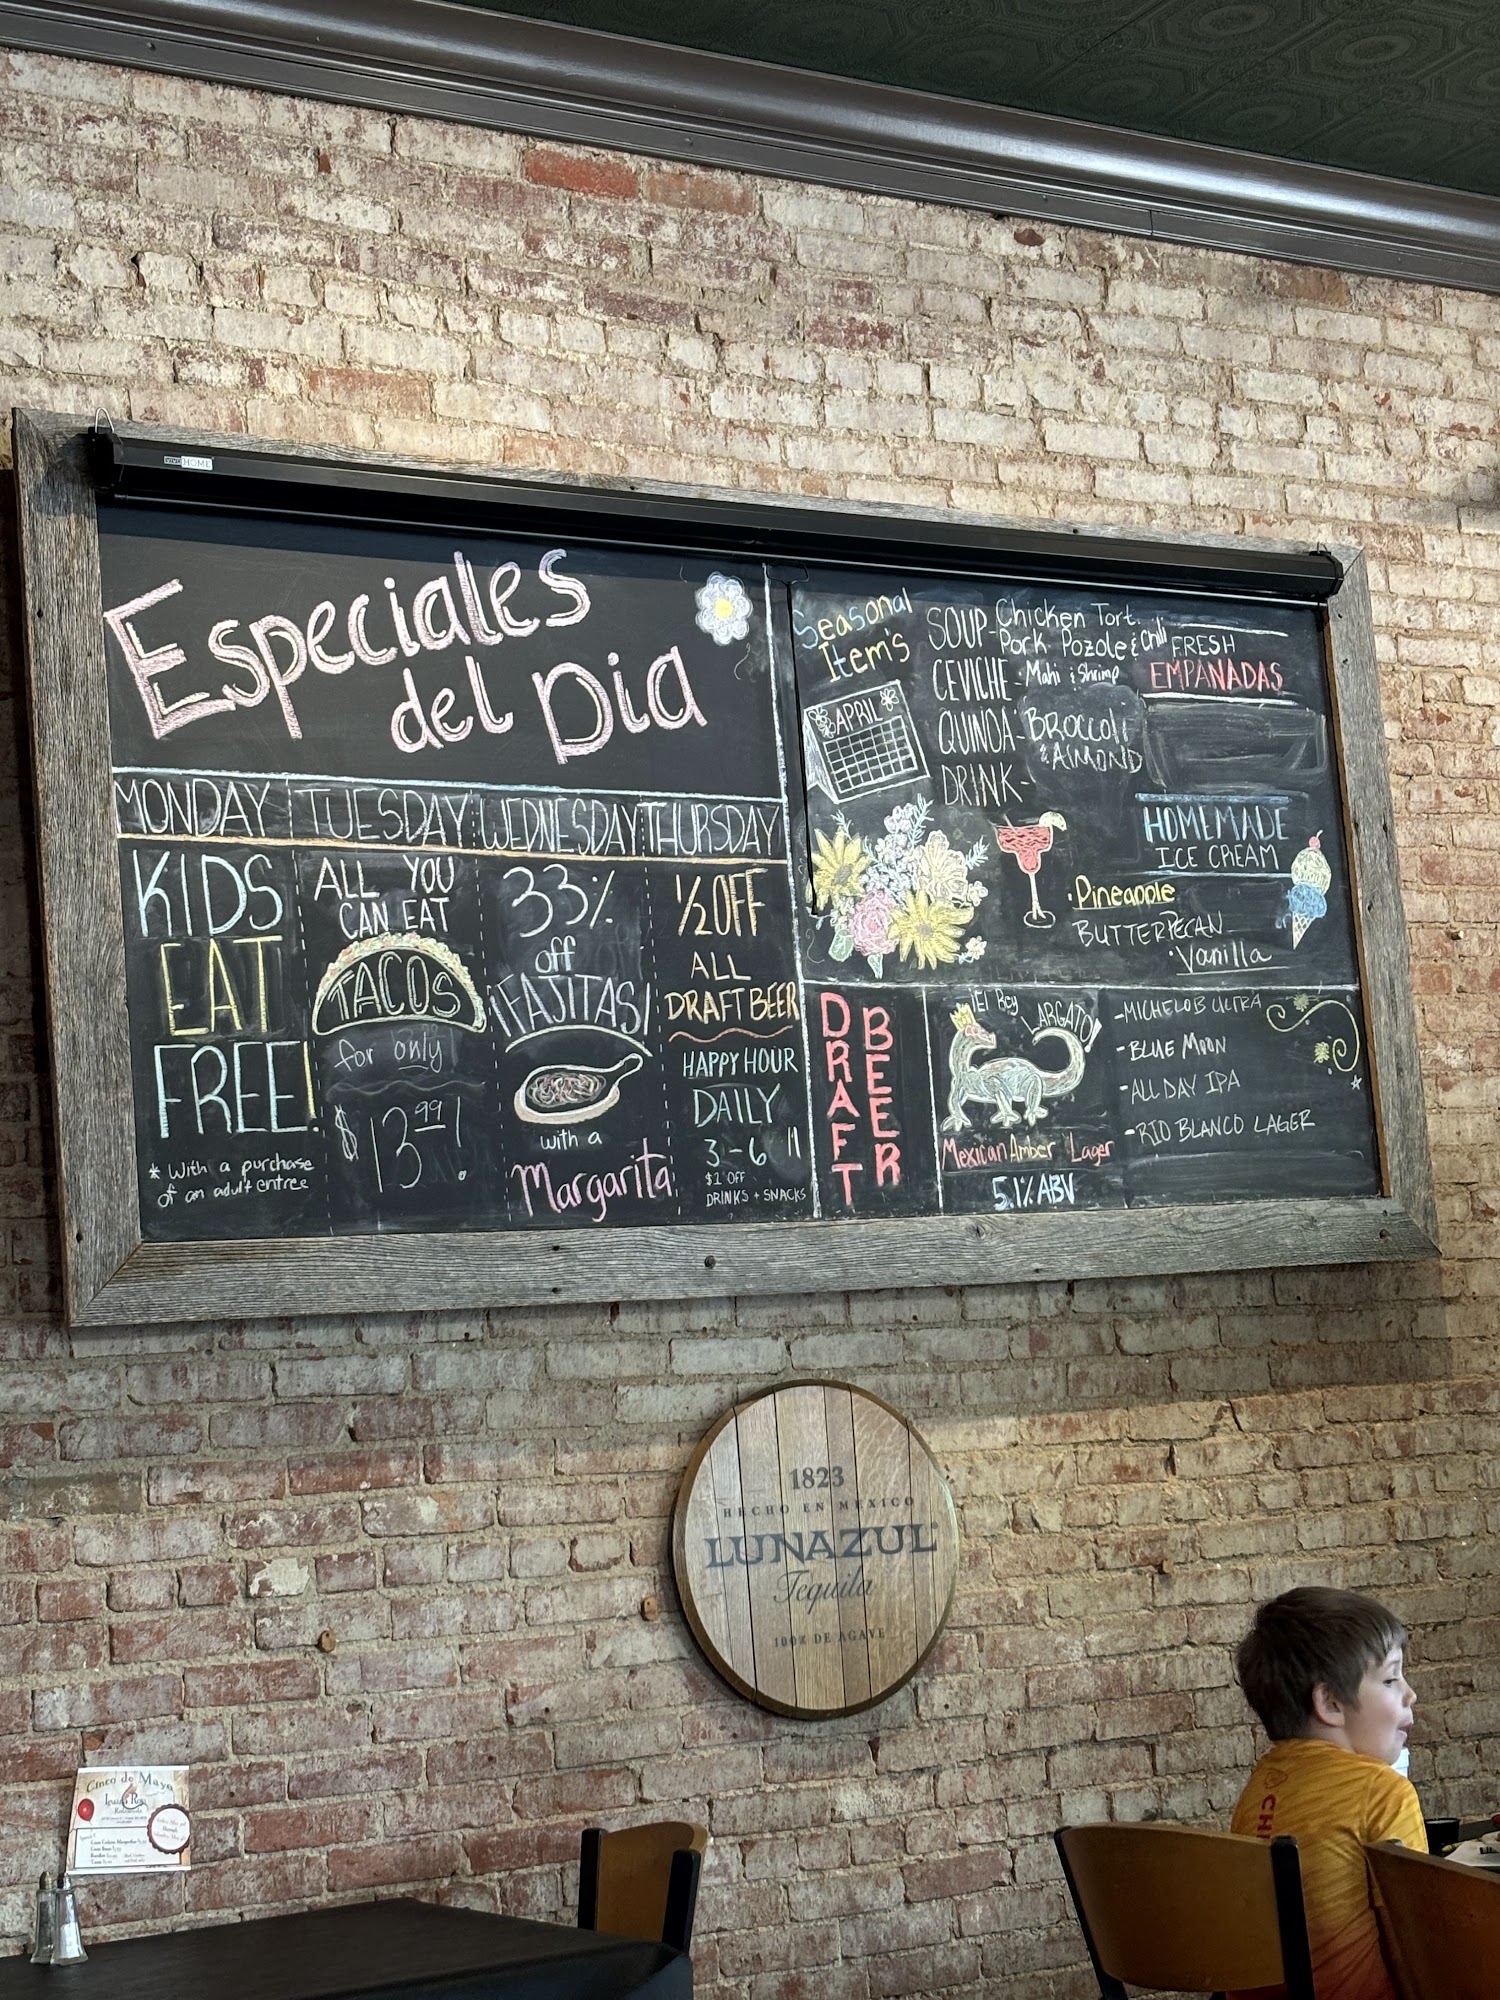 HOME
Especiales
del Dia
MONDAY
KIDS
EAT
FREE!
* With a purchase
of an adult entree
TUESDAY
ALL YOU
CAN EAT
TACOS
for only
$13.99!
WEDNESDAY
33%
off
¡FAJITAS!
with a
Margarita
THURSDAY
1/2 OFF
ALL
DRAFT BEER
HAPPY HOUR
DAILY
3-6
$1 OFF
DRINKS + SNACKS
Seasonal
Item's
APRIL
SOUP- Chicken Tort.
Pork Pozole & Chili
CEVICHE- Mahi & Shrimp
QUINOA- Broccoli
& ALMOND
DRINK-
FRESH
EMPANADAS
HOMEMADE
ICE CREAM
·Pineapple
BUTTERPECAN
·Vanilla
DRAFT
BEER
¡El Rey
LARGATO!
Mexican Amber Lager
5.1% ABV
-MICHELOB ULTRA
-BLUE MOON
-ALL DAY IPA
-RIO BLANCO LAGER
1823
HECHO EN MEXICO
LUNAZUL
Tequila
100% DE AGAVE
Cinco de Mayo
CHI